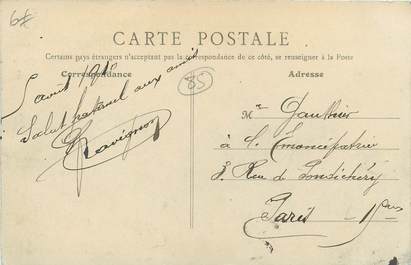 6f
CARTE POSTALE
Certains pays étrangers n'acceptant pas la correspondance de ce côté, se renseigner à la Poste
Correspondance
Adresse
85
5 avril
Salut fraternel aux amis
Ravignon
Mr Gauthier
à l'Emancipatrice
3, Rue de Pondichéry
Paris - 15